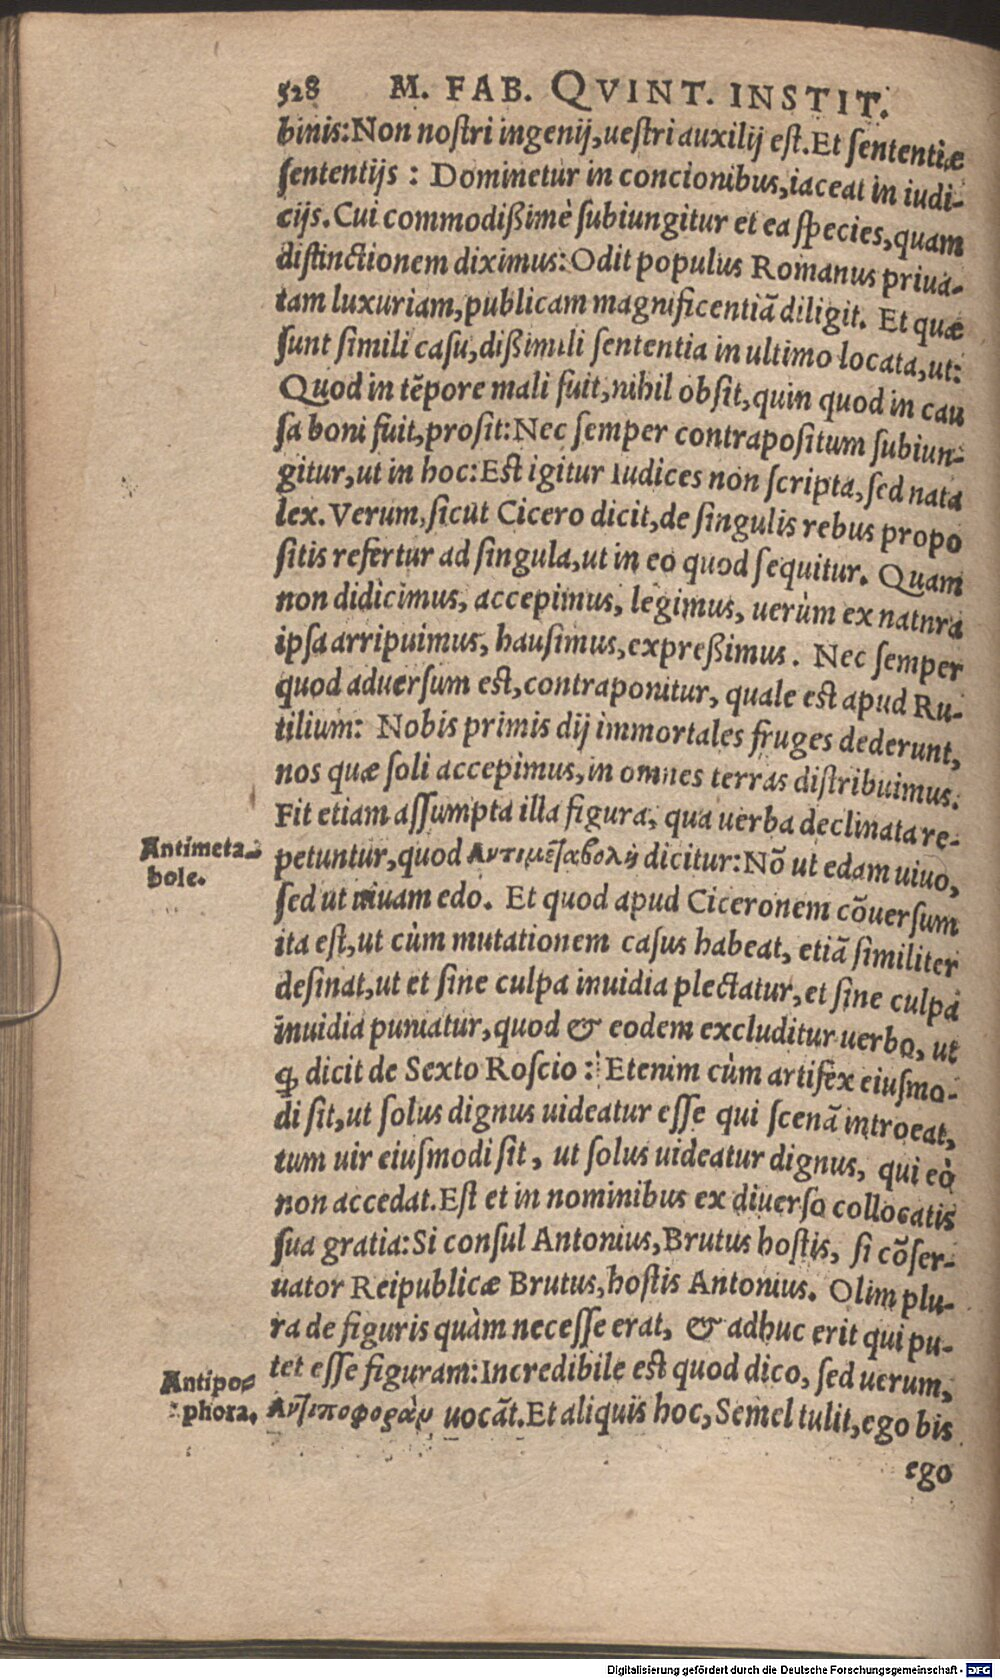 528 M. FAB. QVINT. INSTIT.
binis: Non nostri ingenij, uestri auxilij est. Et sententiæ
sententijs : Dominetur in concionibus, iaceat in iudi-
cijs. Cui commodißimè subiungitur et ea species, quam
distinctionem diximus: Odit populus Romanus priua-
tam luxuriam, publicam magnificentiã diligit. Et quæ
sunt simili casu, dißimili sententia in ultimo locata, ut:
Quod in tẽpore mali fuit, nihil obsit, quin quod in cau
sa boni fuit, prosit: Nec semper contrapositum subiun-
gitur, ut in hoc: Est igitur Iudices non scripta, sed nata
lex. Verum, sicut Cicero dicit, de singulis rebus propo
sitis refertur ad singula, ut in eo quod sequitur. Quam
non didicimus, accepimus, legimus, uerùm ex natnra
ipsa arripuimus, hausimus, expreßimus. Nec semper
quod aduersum est, contraponitur, quale est apud Ru-
tilium: Nobis primis dij immortales fruges dederunt,
nos quæ soli accepimus, in omnes terras distribuimus.
Fit etiam assumpta illa figura, qua uerba declinata re-
Antimeta-
bole.
petuntur, quod Αντιμεταβολὴ dicitur: Nõ ut edam uiuo,
sed ut uiuam edo. Et quod apud Ciceronem cõuersum
ita est, ut cùm mutationem casus habeat, etiã similiter
desinat, ut et sine culpa inuidia plectatur, et sine culpa
inuidia puniatur, quod & eodem excluditur uerbo, ut
ꝙ dicit de Sexto Roscio : Etenim cùm artifex eiusmo-
di sit, ut solus dignus uideatur esse qui scenã introeat,
tum uir eiusmodi sit, ut solus uideatur dignus, qui eò
non accedat. Est et in nominibus ex diuerso collocatis
sua gratia: Si consul Antonius, Brutus hostis, si cõser-
uator Reipublicæ Brutus, hostis Antonius. Olim plu-
ra de figuris quàm necesse erat, & adhuc erit qui pu-
tet esse figuram: Incredibile est quod dico, sed uerum,
Antipo-
phora.
Αντιποφορὰν uocãt. Et aliquis hoc, Semel tulit, ego bis
ego
Digitalisierung gefördert durch die Deutsche Forschungsgemeinschaft - DFG